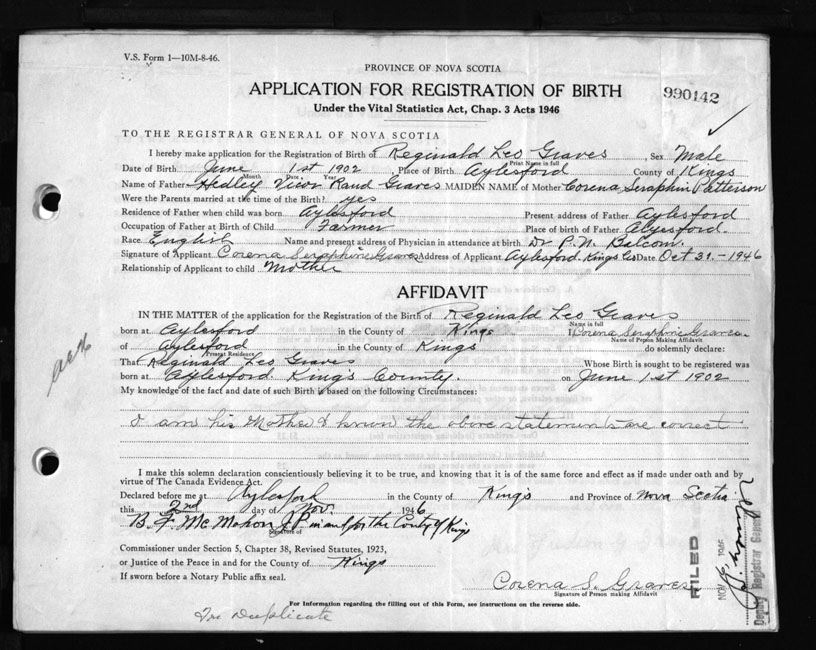 V.S. Form 1—10M-8-46.
PROVINCE OF NOVA SCOTIA
APPLICATION FOR REGISTRATION OF BIRTH
990142
Under the Vital Statistics Act, Chap. 3 Acts 1946
TO THE REGISTRAR GENERAL OF NOVA SCOTIA
I hereby make application for the Registration of Birth of Reginald Leo Graves Sex Male
Print Name in full
Date of Birth June 1st 1902 Place of Birth Aylesford County of Kings
Month Date Year
Name of Father Hedley Rand Graves MAIDEN NAME of Mother Corena Seraphin Patterson
Were the Parents married at the time of the Birth? yes
Residence of Father when child was born Aylesford Present address of Father Aylesford
Occupation of Father at Birth of Child Farmer Place of birth of Father Alyesford.
Race English Name and present address of Physician in attendance at birth Dr P.N. Balcom.
Signature of Applicant Corena Seraphine Graves Address of Applicant Aylesford Kings Co Date Oct 31.-1946
Relationship of Applicant to child Mother
AFFIDAVIT
IN THE MATTER of the application for the Registration of the Birth of Reginald Leo Graves
Name in full
born at Aylesford in the County of Kings I Corena Seraphine Graves.
Name of Person Making Affidavit
of Aylesford in the County of Kings do solemnly declare:
Present Residence
That Reginald Leo Graves Whose Birth is sought to be registered was
born at Aylesford King's County. on June 1st 1902
My knowledge of the fact and date of such Birth is based on the following Circumstances:
I am his Mother & know the above statements are correct
I make this solemn declaration conscientiously believing it to be true, and knowing that it is of the same force and effect as if made under oath and by
virtue of The Canada Evidence Act.
Declared before me at Aylesford in the County of King's and Province of Nova Scotia
this 2nd day of Nov. 1946
B. F. McMahon J.P. in and for the County of Kings
Signature of
Commissioner under Section 5, Chapter 38, Revised Statutes, 1923,
or Justice of the Peace in and for the County of Kings
If sworn before a Notary Public affix seal.
Corena S. Graves
Signature of Person making Affidavit
For Information regarding the filling out of this Form, see instructions on the reverse side.
In Duplicate
FILED
NOV
Deputy Registrar General